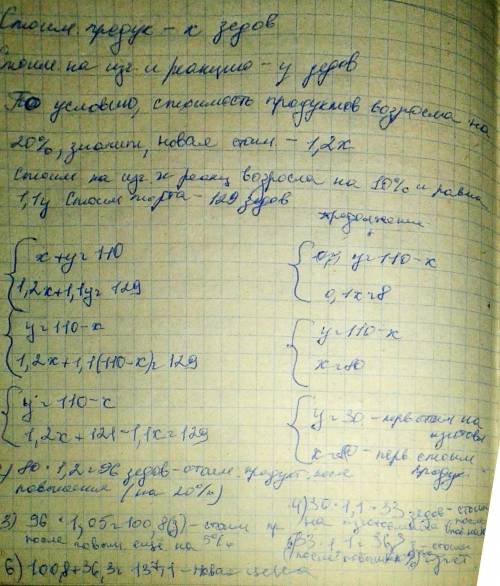 Стоим. продук - х зедов
Стоим. на изг. и реакцию - у зедов
По условию, стоимость продуктов возросла на
20%, значит, новая стоим. - 1,2х
Стоим на изг. и реакц возросла на 10% и равна
1,1у Стоим торта - 129 зедов
х+у=110
1,2х+1,1у=129
у=110-х
1,2х+1,1(110-х)=129
у=110-х
1,2х+121-1,1х=129
продолжение
у=110-х
0,1х=8
у=110-х
х=80
у=30 - перв стоим на изготовл
х=80 - перв стоим продук
1) 80·1,2=96 зедов - стоим. продукт. после
повышения (на 20%)
3) 96·1,05=100,8(з) - стоим пр
после повыш. ещё на 5%
4) 30·1,1=33 зедов - стоим
на изготовл
33·1,1=36,3 - стоим
после повышения
6) 100,8+36,3=137,1 - новая цена